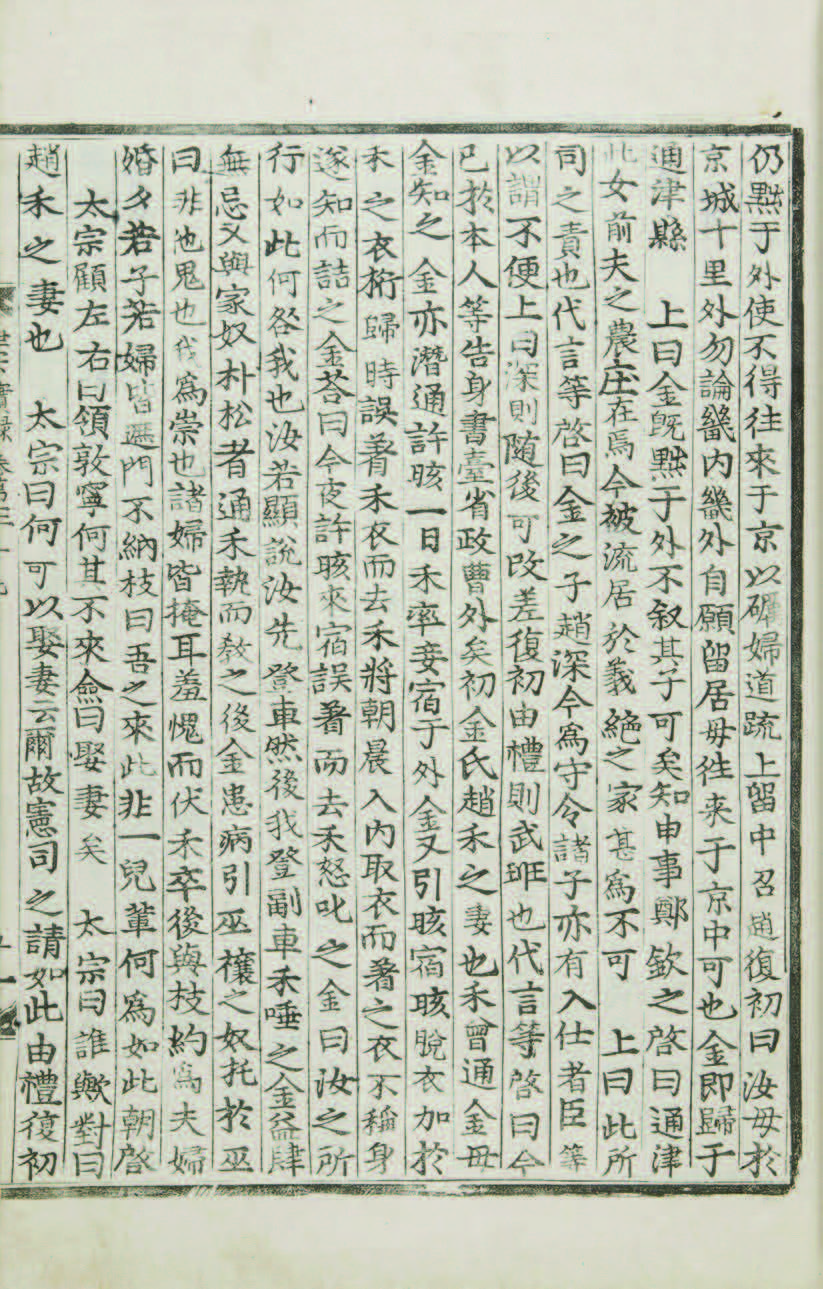 仍黜于外使不得往來于京以礪婦道疏上留中召趙復初曰汝毋於
京城十里外勿論畿內畿外自願留居毋往来于京中可也金即歸于
通津縣　上曰金旣黜于外不叙其子可矣知申事鄭欽之啓曰通津
此女前夫之農庄在焉今被流居於義絶之家甚爲不可　上曰此所
司之責也代言等啓曰金之子趙深今爲守令諸子亦有入仕者臣等
以謂不便上曰深則随後可改差復初由禮則武班也代言等啓曰今
已於本人等告身書臺省政曹外矣初金氏趙禾之妻也禾曾通金母
金知之　金亦潛通許晐一日禾率妾宿于外金又引晐宿晐脫衣加於
禾之衣桁歸時誤着禾衣而去禾將朝晨入內取衣而著之衣不稱身
遂知而詰之金荅曰今夜許晐來宿誤着而去禾怒叱之金曰汝之所
行如此何咎我也汝若顯說汝先登車然後我登副車禾唾之金益肆
無忌又與家奴朴松者通禾執而殺之後金患病引巫禳之奴托於巫
曰非他鬼也我爲祟也諸婦皆掩耳羞愧而伏禾卒後與枝約爲夫婦
婚夕若子若婦皆遮門不納枝曰吾之來此非一兒輩何爲如此朝啓
太宗顧左右曰領敦寧何其不來僉曰娶妻矣　太宗曰誰歟對曰
趙禾之妻也　太宗曰何可以娶妻云爾故憲司之請如此由禮復初